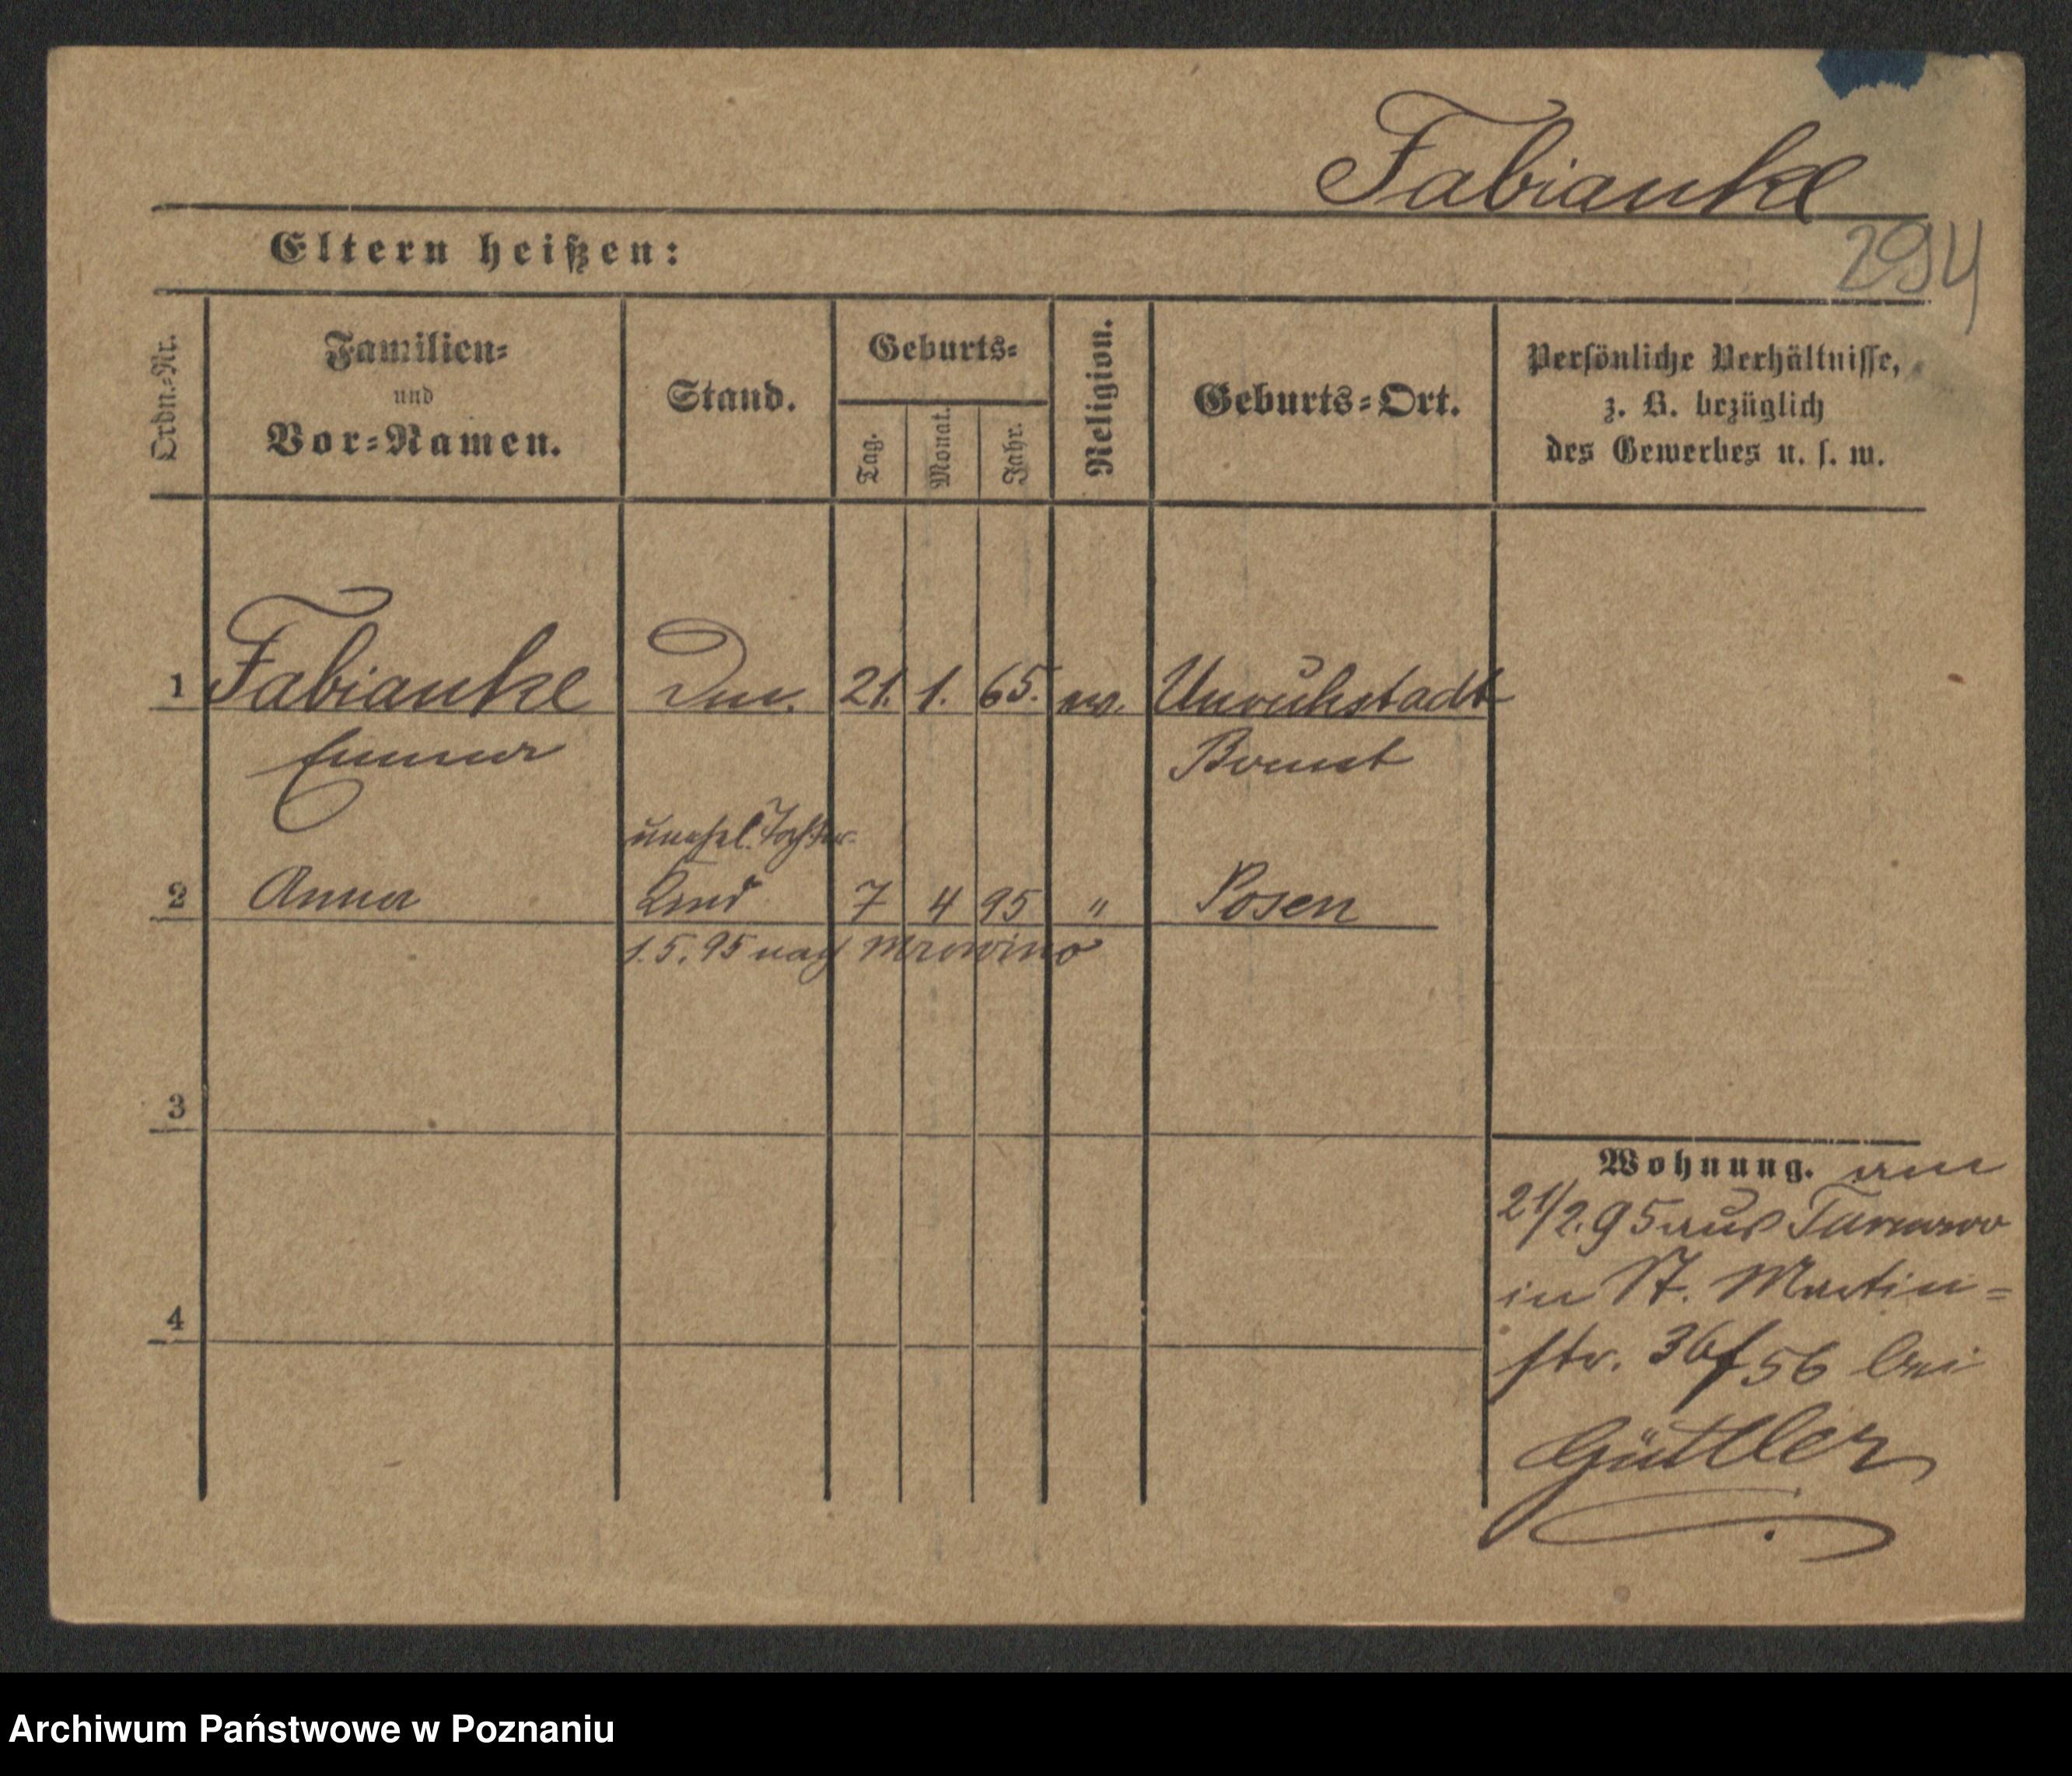 Fabianke
294
Eltern heißen:
Ordn.-Nr.
Familien-
und
Vor-Namen.
Stand.
Geburts-
Tag.
Monat.
Jahr.
Religion.
Geburts-Ort.
Persönliche Verhältnisse,
z. B. bezüglich
des Gewerbes u. s. w.
1 Fabianke 21. 1. 65. ev. Unruhstadt
Emma Bomst
unehel. Tochter
2 Anna Kind 7 4 95 " Posen
1.5.95 nach Mrowino
3
4
Wohnung. am
21/2.95 aus
in St. Martin=
str. 36/56 bei
Güttler
Archiwum Państwowe w Poznaniu